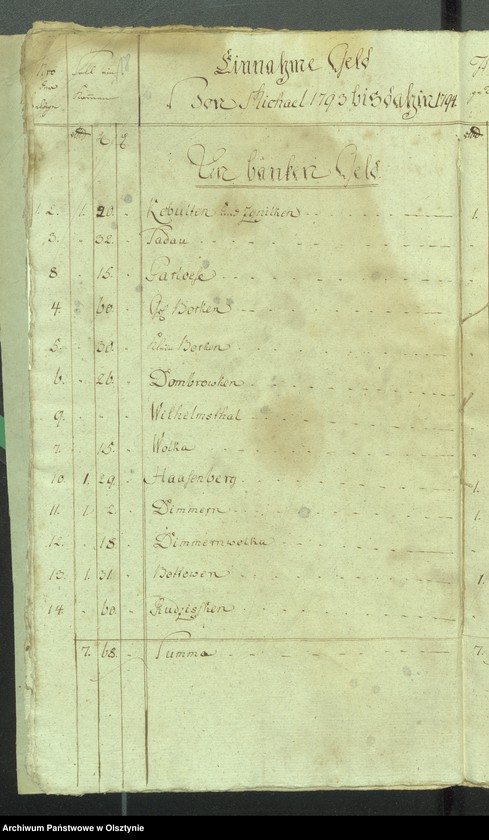 Einnahme Geld
Von Michael 1793 bis dahin 1794.
An bänken Geld
1. 2. 1. 20. Kobulten und
3. - 32.
8. - 15. Parloese
4. - 60. Gr Borken
5. - 30. Klein Borken
6. - 26. Dombrowken
9. - - Wilhelmsthal
7. - 15. Wolka
10. 1. 29. Haasenberg
11. 1. 2. Dimmern
12. - 18. Dimmernwolka
13. 1. 31. Bottowen
14. - 60. Rudzisken
7. 68. Summa
Archiwum Państwowe w Olsztynie